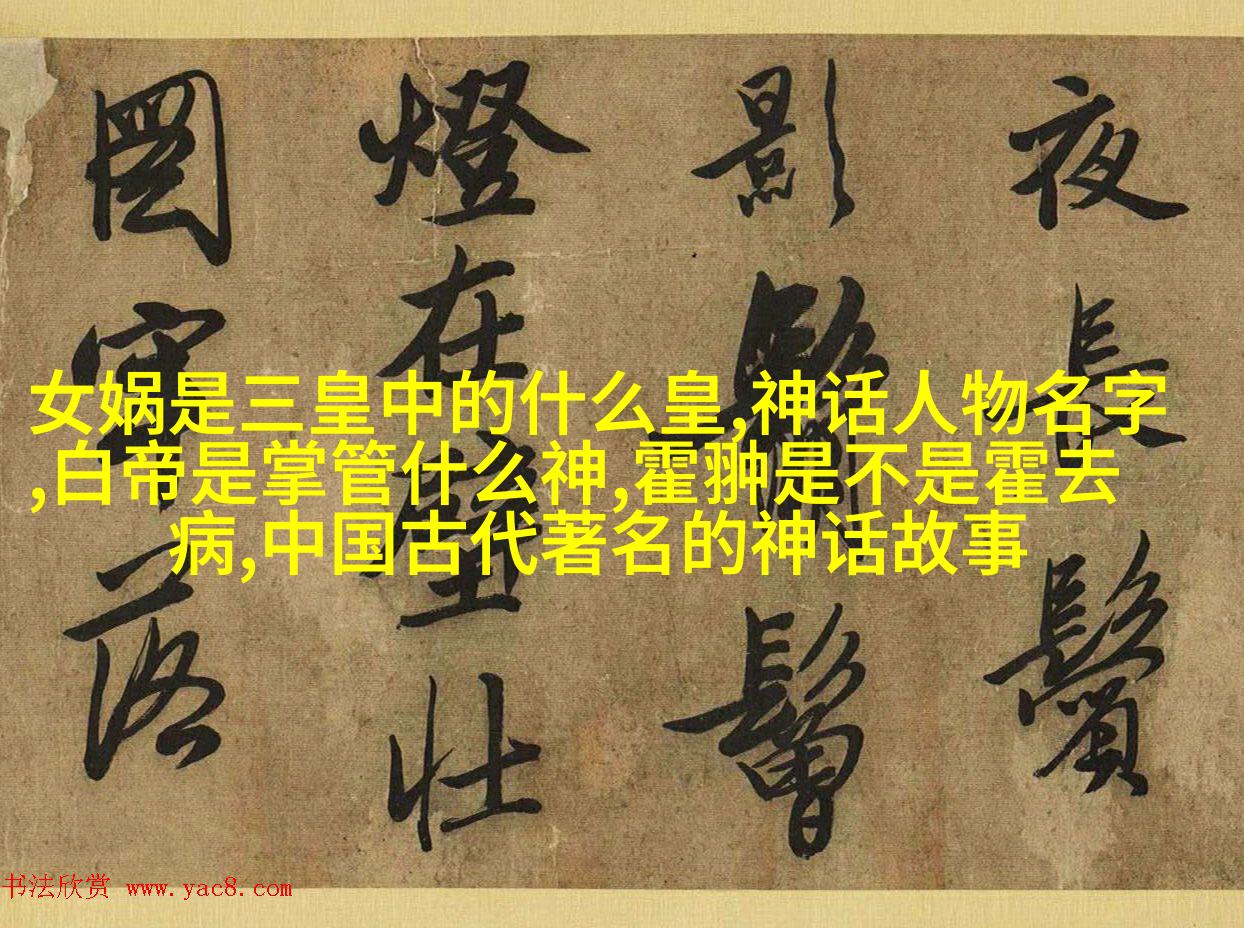 夜長鬢
影鬅鬙
燈在壁壯
圖牢落
女娲是三皇中的什么皇,神话人物名字
,白帝是掌管什么神,霍翀是不是霍去
病,中国古代著名的神话故事
书法欣赏 www.yac8.com